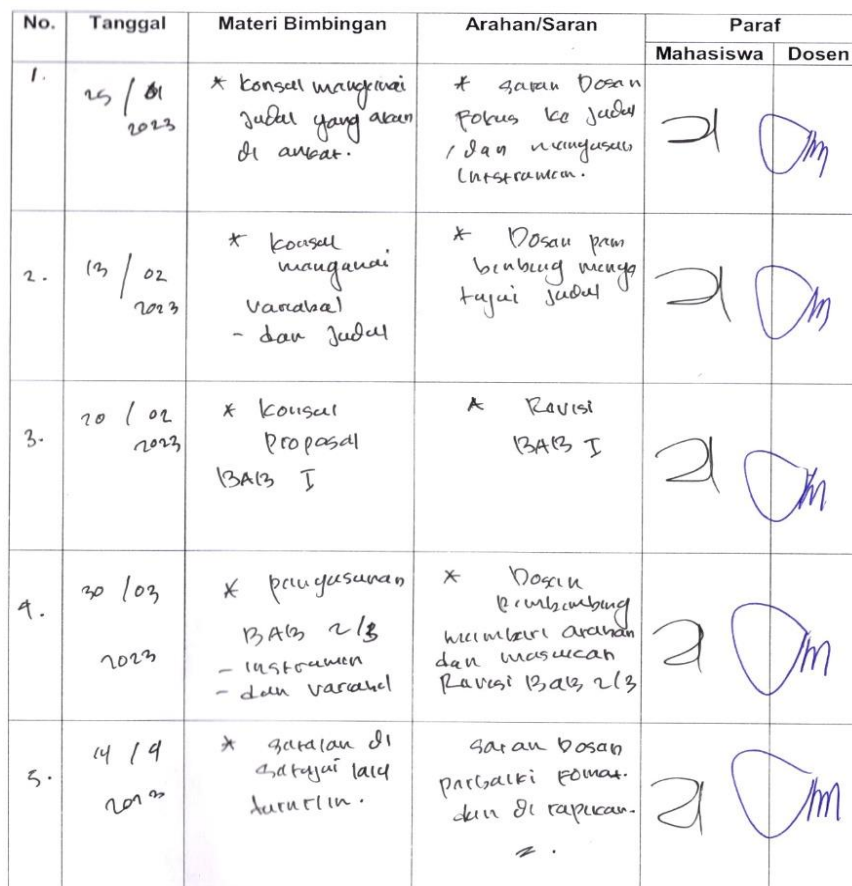 No. Tanggal Materi Bimbingan Arahan/Saran Paraf
Mahasiswa Dosen
1.
25 / 01
2023
* konsul mengenai
Judul yang akan
di angkat.
* saran Dosen
Fokus ke Judul
, dan menyusun
instrumen.
2.
13 / 02
2023
* konsul
mengenai
variabel
- dan Judul
* Dosen pem
bimbing menye
tujui Judul
3.
20 / 02
2023
* konsul
Proposal
BAB I
* Revisi
BAB I
4.
30 / 03
2023
* penyusunan
BAB 2/3
- instrumen
- dan variabel
* Dosen
Pembimbing
memberi arahan
dan masukan
Revisi BAB 2/3
5.
14 / 4
2023
* setelah di
setujui lalu
saran Dosen
perbaiki Format.
dan di rapikan.